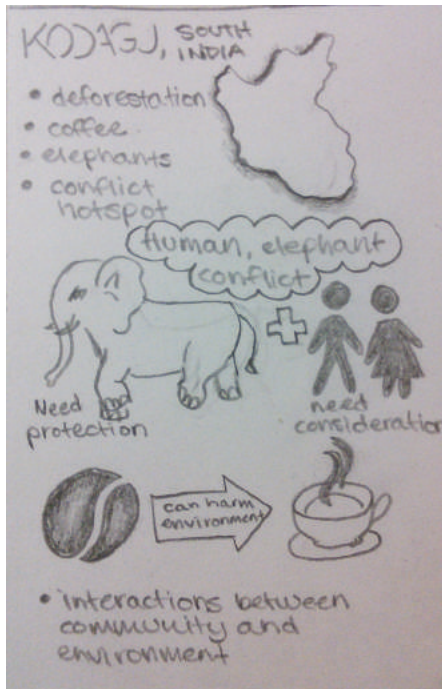 KODAGU, SOUTH
INDIA
• deforestation
• coffee
• elephants
• conflict
hotspot
Human, elephant
conflict
Need
protection
need
consideration
can harm
environment
• interactions between
community and
environment